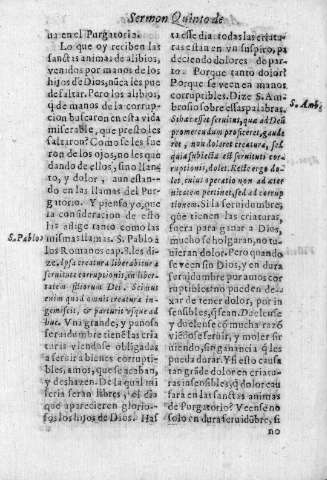 Sermon Quinto de
na en el Purgatorio.
Lo que oy reciben las
sanctas animas de alibios,
venidos por manos de los
hijos de Dios, nũca les pue
de faltar. Pero los alibios,
q̃ de manos de la corrup-
cion buscaron en esta vida
miserable, que presto les
faltaron? Como se les fue
ron de los ojos, no les que
dando de ellos, sino llan-
to, y dolor, aun estan-
do en las llamas del Pur-
gatorio. Y pienso yo, que
la consideracion de esto
las aflige tanto como las
S. Pablo
mismas llamas. S. Pablo a
los Romanos cap. 8. les di-
ze. Ipsa creatura liberabitur a
seruitute corruptionis, in liber-
tatem filiorum Dei. Scimus
enim quod omnis creatura in-
gemiscit, & parturit vsque ad
huc. Vna grande, y penosa
seruidumbre tienẽ las cria
turas viendose obligadas
a seruir a bienes corrupti-
bles, amos, que se acaban,
y deshazen. De la qual mi
seria seran libres, el dia
que aparecieren glorio-
sos los hijos de Dios. Has
ta esse dia todas las criatu-
ras estàn en vn suspiro, pa
deciendo dolores de par-
to. Porque tanto dolor?
Porque se veen en manos
corruptibles. Dize S. Am-
S. Amb.
brosio sobre essas palabras.
Si hac esset seruitus, que ad Deũ
promerendum proficeret, gaude
ret, non doloret creatura, sed
quia subiecta est seruituti cor-
ruptionis, dolet. Recte ergo do-
let, cuius operatio non ad eter
nitatem pertinet, sed ad corrup
tionem. Si la seruidumbre,
que tienen las criaturas,
fuera para ganar a Dios,
mucho se holgaran, no tu-
uieran dolor. Pero quando
se veen sin Dios, y en dura
seruidumbre por amos cor
ruptibles no pueden de-
xar de tener dolor, por in
sensibles, q̃ sean. Duelense
y duelense cõ mucha razõ
viẽdose seruir, y moler sir
uiendo, sin ganancia q̃ les
pueda durar. Y si esto causa
tan grãde dolor en criatu-
ras insensibles, q̃ dolor cau
sarà en las sanctas animas
de Purgatorio? Veense no
solo en dura seruidũbre, si
no